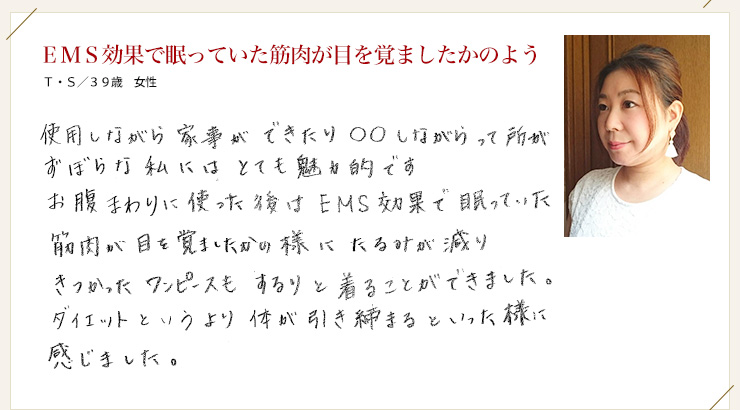 ＥＭＳ効果で眠っていた筋肉が目を覚ましたかのよう
Ｔ・Ｓ／３９歳　女性
使用しながら 家事が できたり ○○しながらって所が
ずぼらな 私には とても 魅力的です
お腹まわりに 使った後は EMS効果で 眠っていた
筋肉が 目を覚ましたかの様に たるみが減り
きつかった ワンピースも するりと 着ることができました。
ダイエットというより 体が 引き締まるといった様に
感じました。